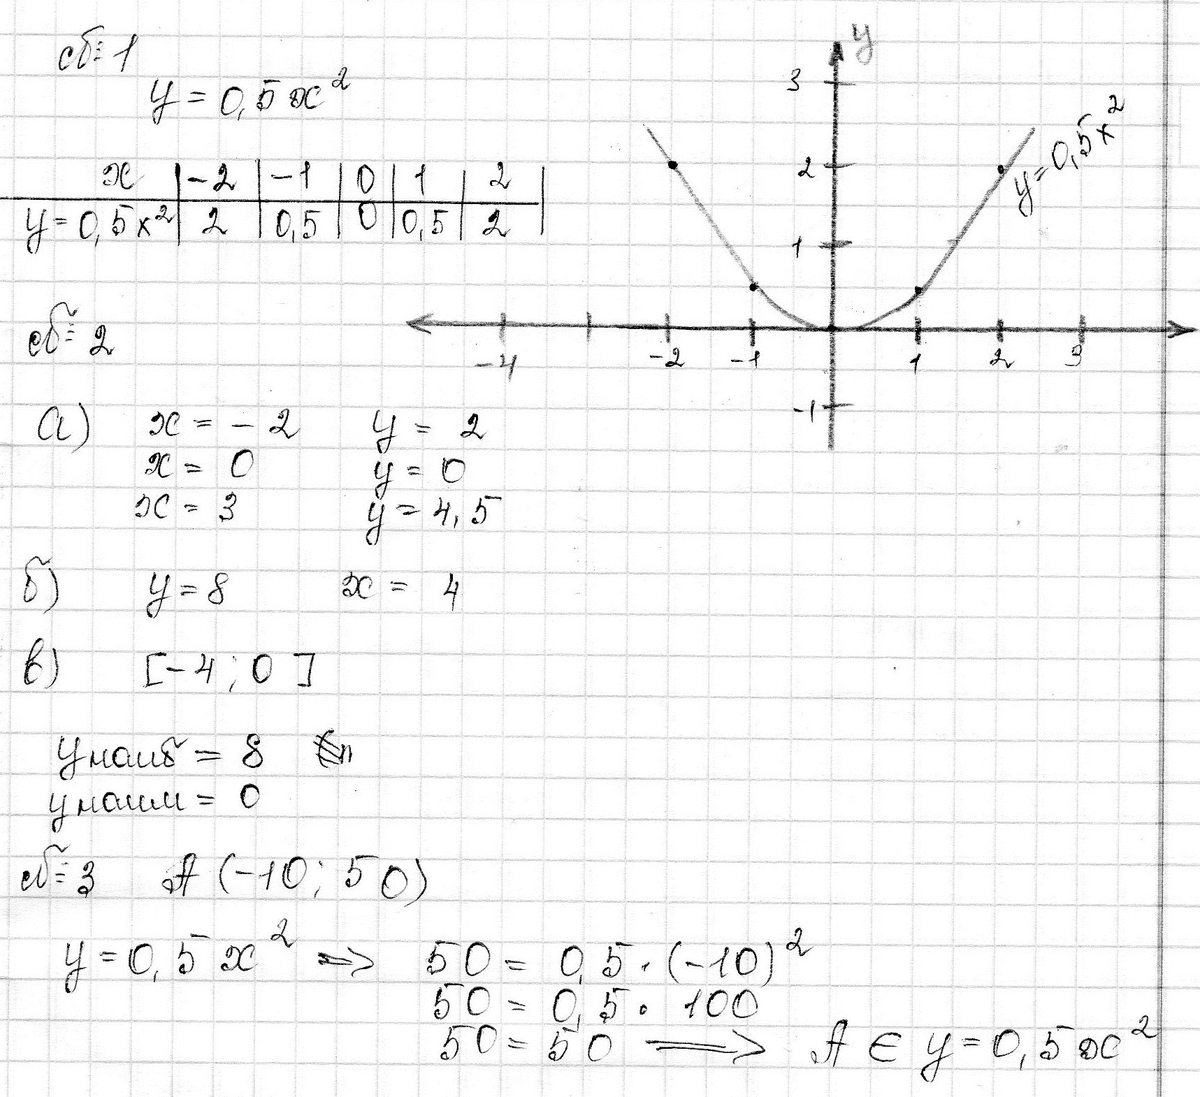 № 1
y = 0,5x²
x | -2 | -1 | 0 | 1 | 2
y = 0,5x² | 2 | 0,5 | 0 | 0,5 | 2
y
3
2
1
-1
-4 -2 -1 1 2 3
y=0,5x²
№ 2
а) x = -2 y = 2
x = 0 y = 0
x = 3 y = 4,5
б) y = 8 x = 4
в) [-4; 0]
yнаиб = 8
yнаим = 0
№ 3 A (-10; 50)
y = 0,5x² => 50 = 0,5 · (-10)²
50 = 0,5 · 100
50 = 50 => A ∈ y = 0,5x²